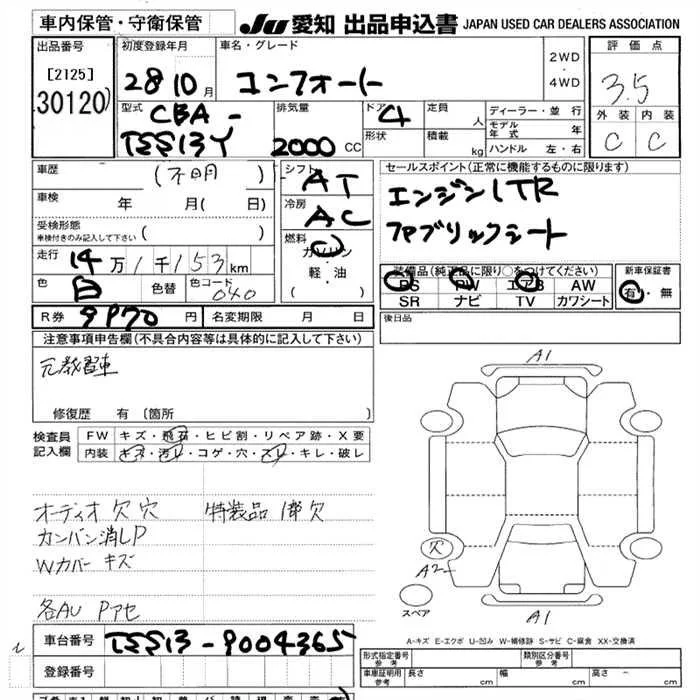 車内保管・守衛保管
JU 愛知 出品申込書 JAPAN USED CAR DEALERS ASSOCIATION
出品番号 初度登録年月 車名・グレード 2WD ・ 4WD 評価点
[2125]
30120
28 10月 コンフォート 3.5
型式 排気量 ドア 定員 ディーラー・並行 外装 内装
CBA-
TSS13Y 2000 CC 4 人 モデル年式 年 C C
形状 積載 kg ハンドル 左・右
車歴 (不明) シフト AT セールスポイント(正常に機能するものに限ります)
車検 年 月( 日) 冷房 AC エンジン1TR
受検形態 ( )
車検付きのみ記入して下さい
燃料 ガソリン ・ 軽油 ( ) ファブリックシート
走行 14万1千153km
装備品(純正品に限り○をつけてください) 新車保証書
色 白 色替 色コード 040
PS PW エアB AW 有・無
SR ナビ TV カワシート
R券 9970円 名変期限 月 日
後日品
注意事項申告欄(不具合内容等は具体的に記入して下さい)
元教習車
修復歴 有 〔箇所
A1
検査員記入欄 FW キズ・飛石・ヒビ割・リペア跡・X要
内装 キズ・汚レ・コゲ・穴・スレ・キレ・破レ
オーディオ欠穴 特装品 1部欠
カンバン消しP
Wカバー キズ
各AU Pアセ
欠
A2
スペア
A1
A-キズ E-エクボ U-凹み W-補修跡 S-サビ C-腐食 XX-交換済
車台番号 TSS13-9004365
形式指定番号 参考 類別区分番号 参考
登録番号
車両証明用参考 長さ cm 幅 cm 高さ cm